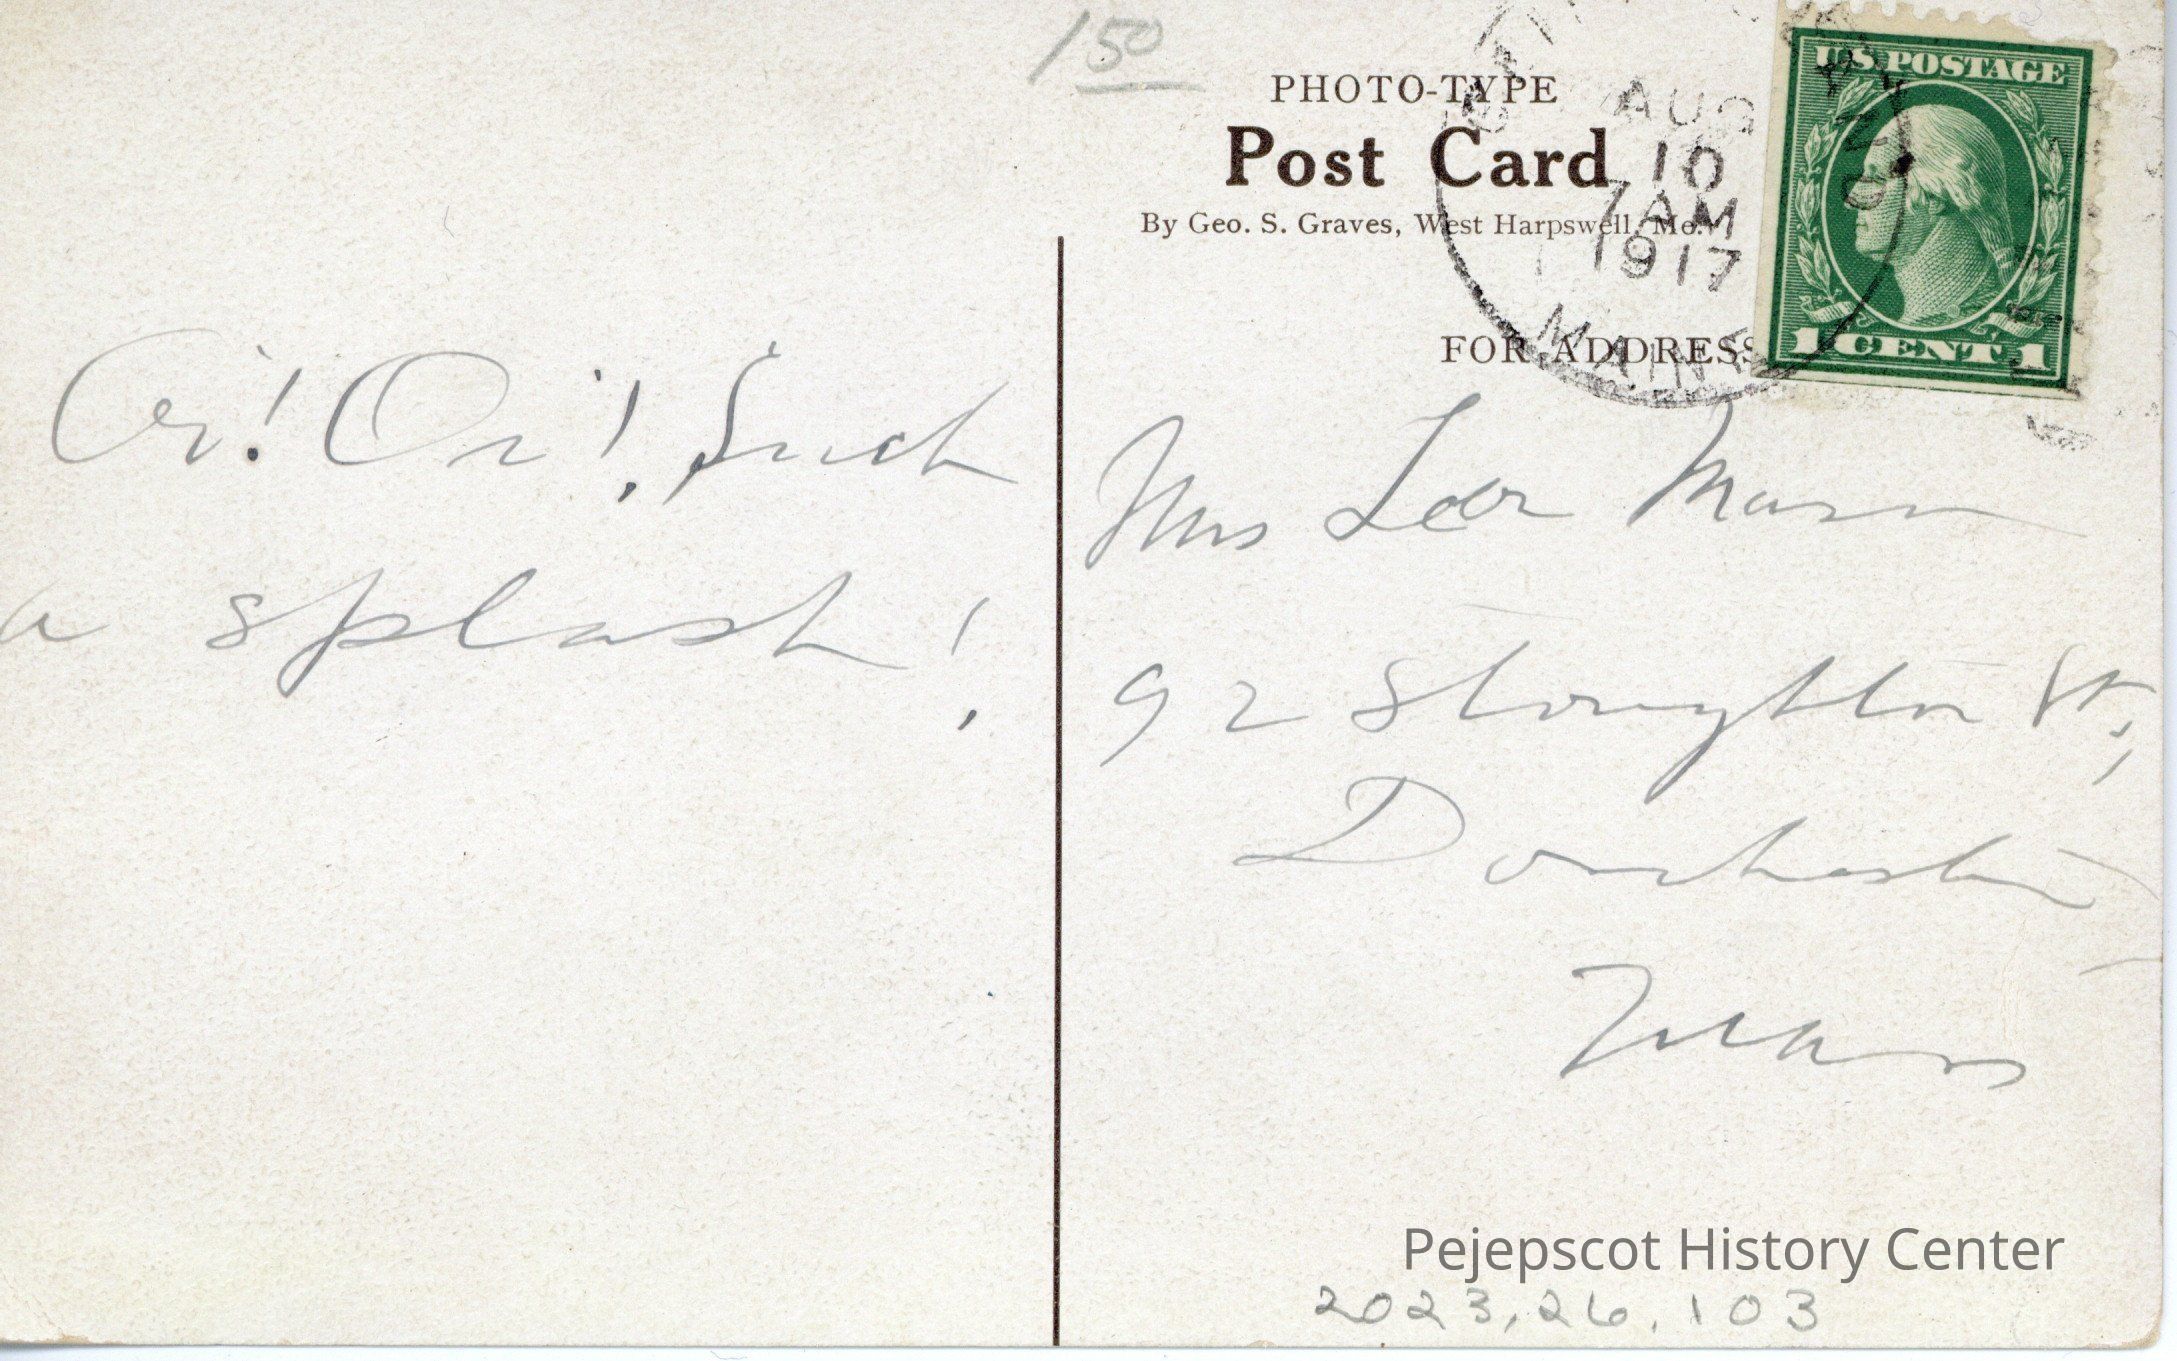 150
PHOTO-TYPE
Post Card
By Geo. S. Graves, West Harpswell, Me.
FOR ADDRESS
AUG
10
7 AM
1917
MAINE
U.S. POSTAGE
1 CENT 1
Oi! Oi! Such
a splash!
Mrs Mann
92 Stoughton St.,
Dorchester
Mass
Pejepscot History Center
2023.26.103